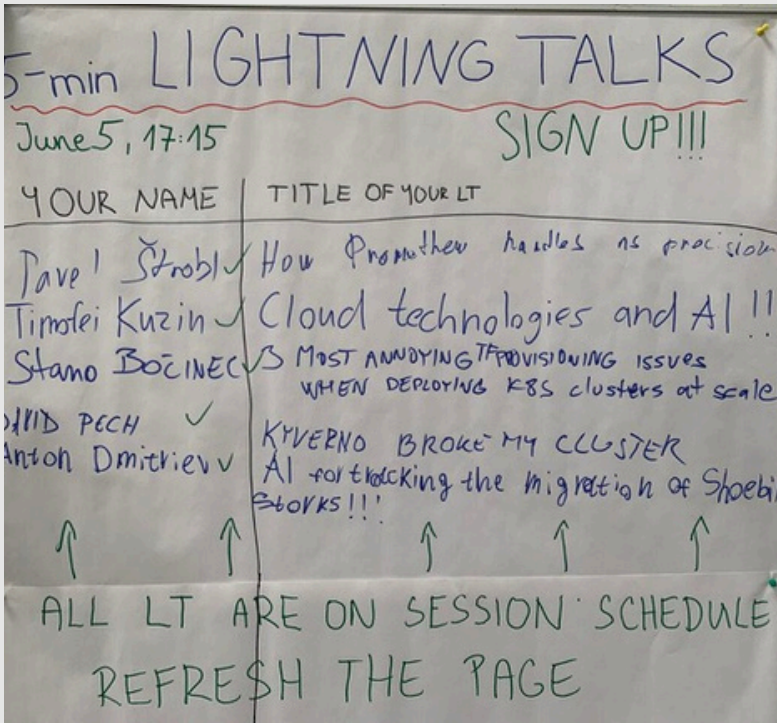 5-min LIGHTNING TALKS
June 5, 17:15 SIGN UP!!!
YOUR NAME TITLE OF YOUR LT
Pavel Štrobl ✓ How handles ns precision
Timofei Kuzin ✓ Cloud technologies and AI !!
Stano BOČINEC ✓ 3 MOST ANNOYING TF PROVISIONING ISSUES
WHEN DEPLOYING K8S clusters at scale
DAVID PECH ✓ KYVERNO BROKE MY CLUSTER
Anton Dmitriev ✓ AI for tracking the migration of Shoebi
Storks!!!
↑ ↑ ↑ ↑ ↑
ALL LT ARE ON SESSION SCHEDULE
REFRESH THE PAGE